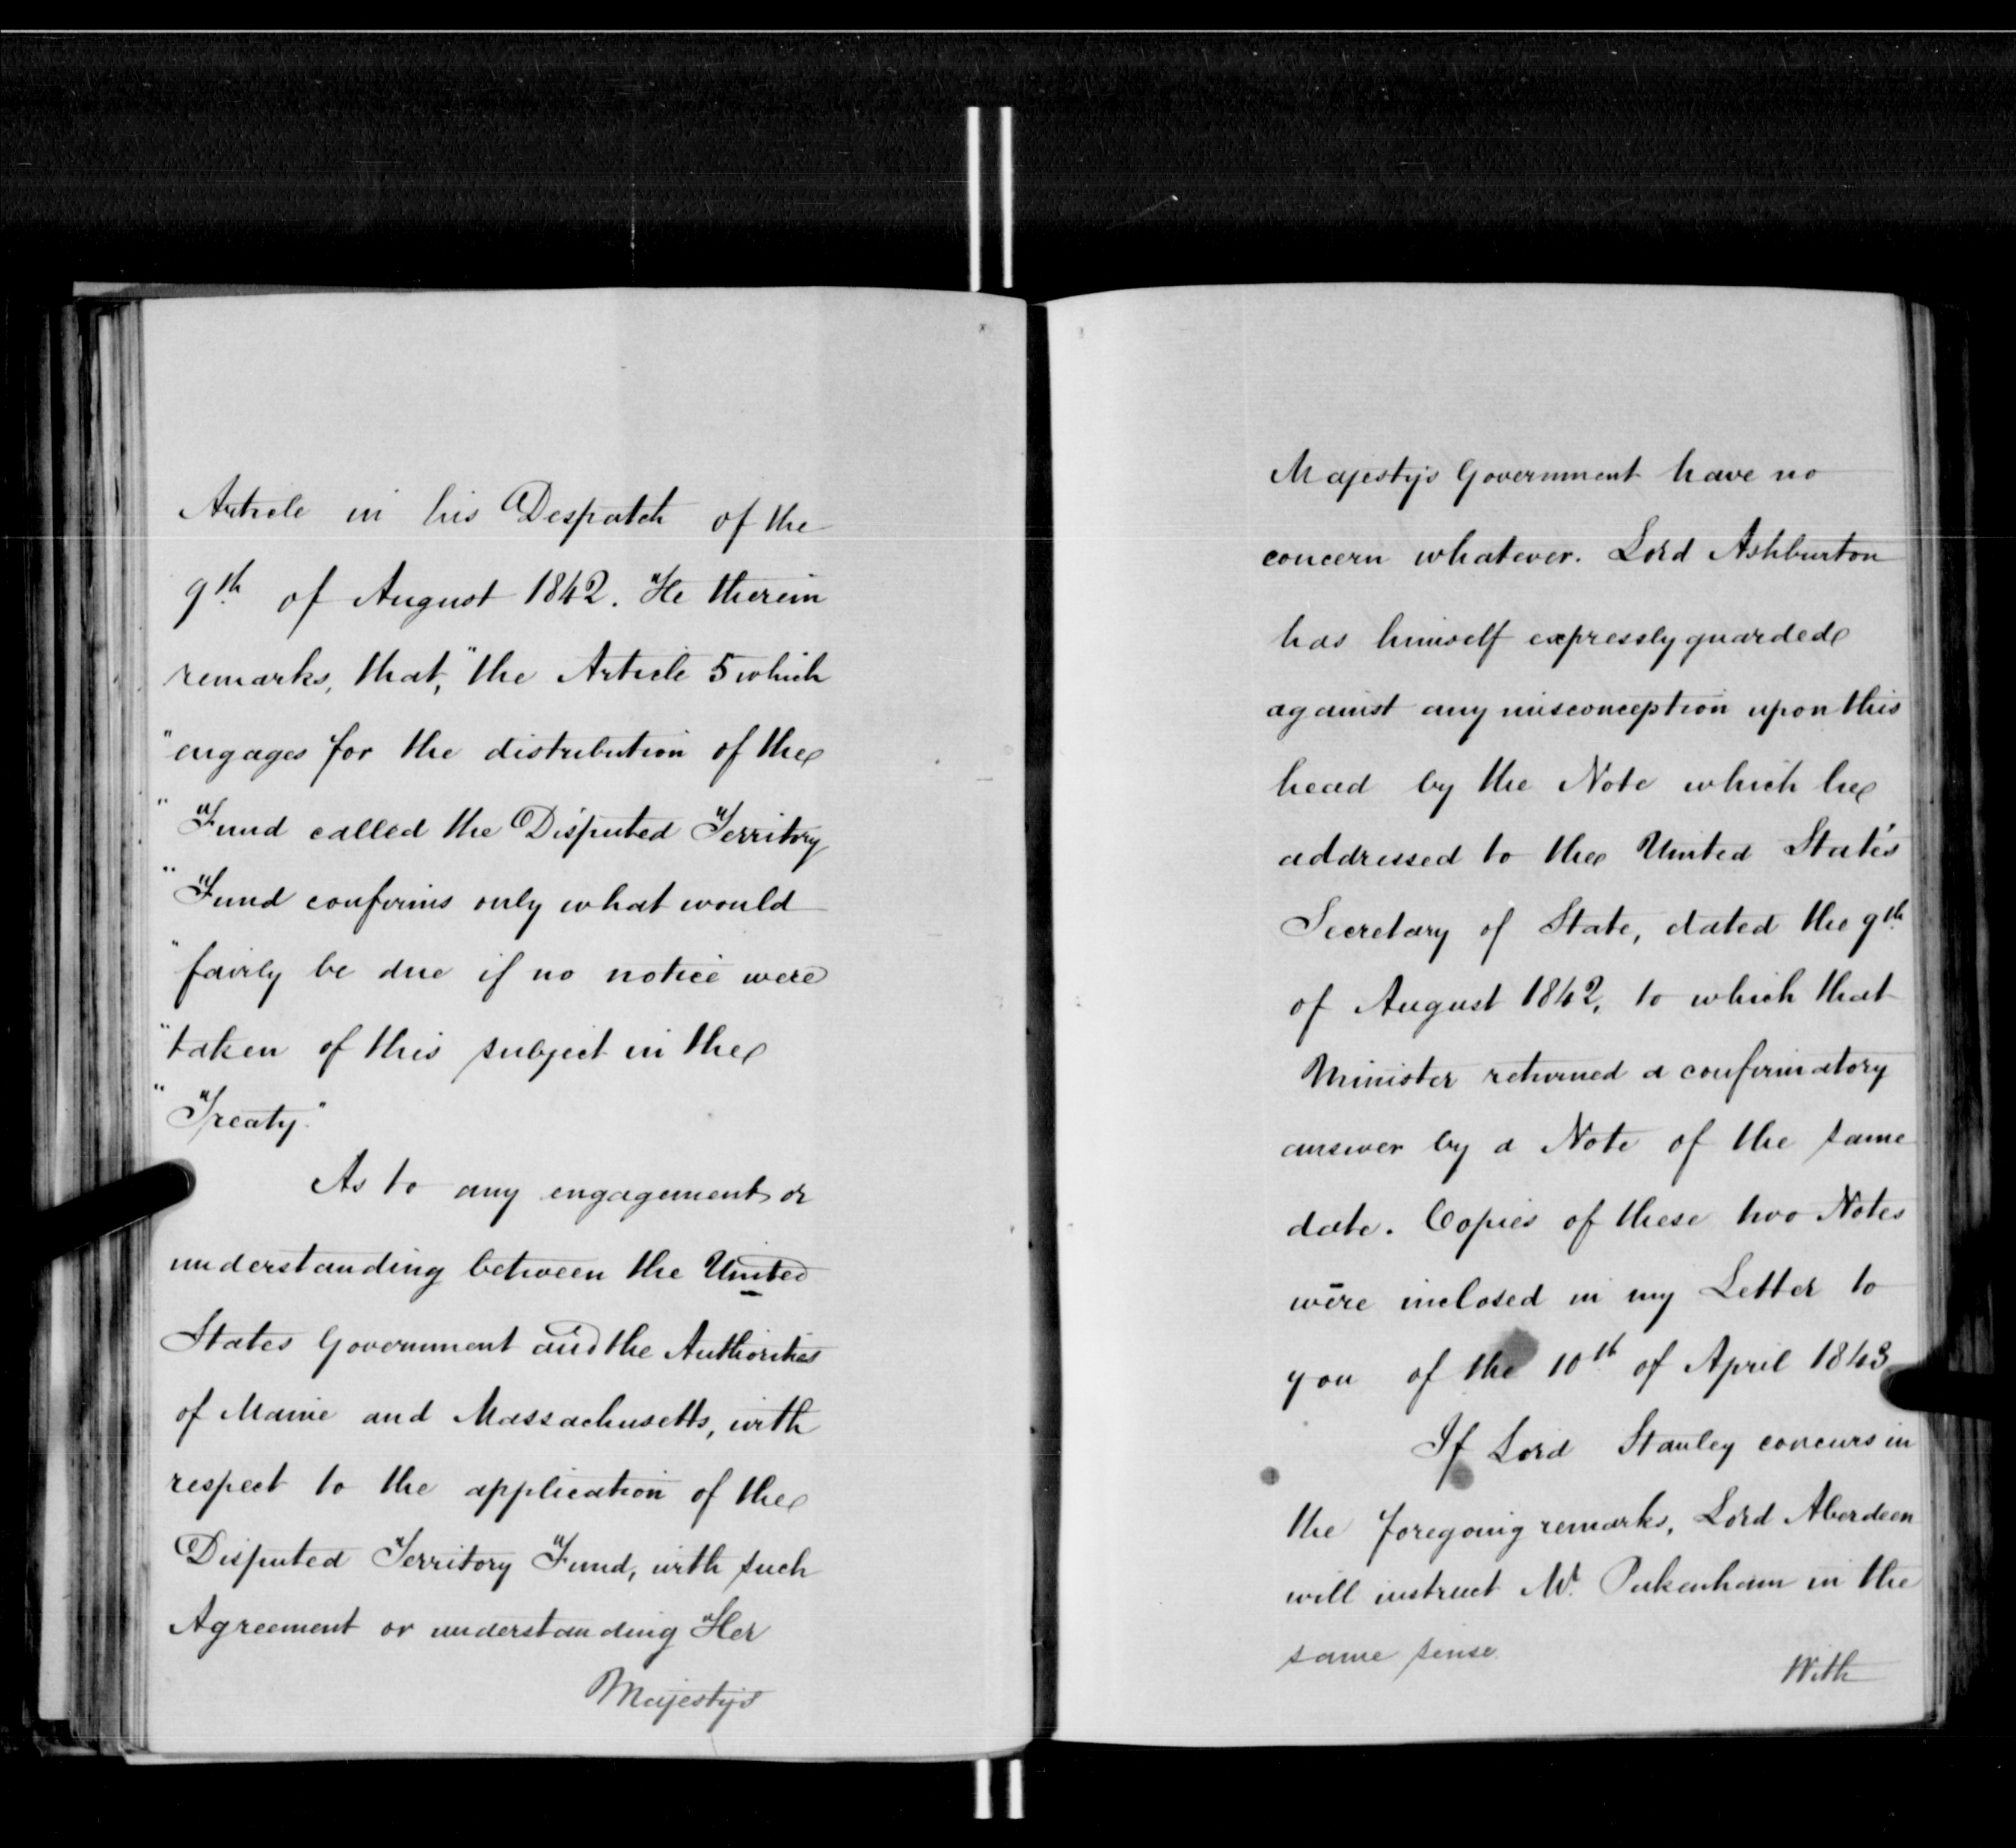 Article in his Despatch of the
9th of August 1842. He therein
remarks, that, "the Article 5 which
"engages for the distribution of the
"Fund called the Disputed Territory
"Fund confirms only what would
"fairly be due if no notice were
"taken of this subject in the
"Treaty."
As to any engagement or
understanding between the United
States Government and the Authorities
of Maine and Massachusetts, with
respect to the application of the
Disputed Territory Fund, with such
Agreement or understanding Her
Majesty's
Majesty's Government have no
concern whatever. Lord Ashburton
has himself expressly guarded
against any misconception upon this
head by the Note which he
addressed to the United State's
Secretary of State, dated the 9th
of August 1842, to which that
Minister returned a confirmatory
answer by a Note of the same
date. Copies of these two Notes
were inclosed in my Letter to
you of the 10th of April 1843
If Lord Stanley concurs in
the foregoing remarks, Lord Aberdeen
will instruct Mr. Pakenham in the
same sense.
With